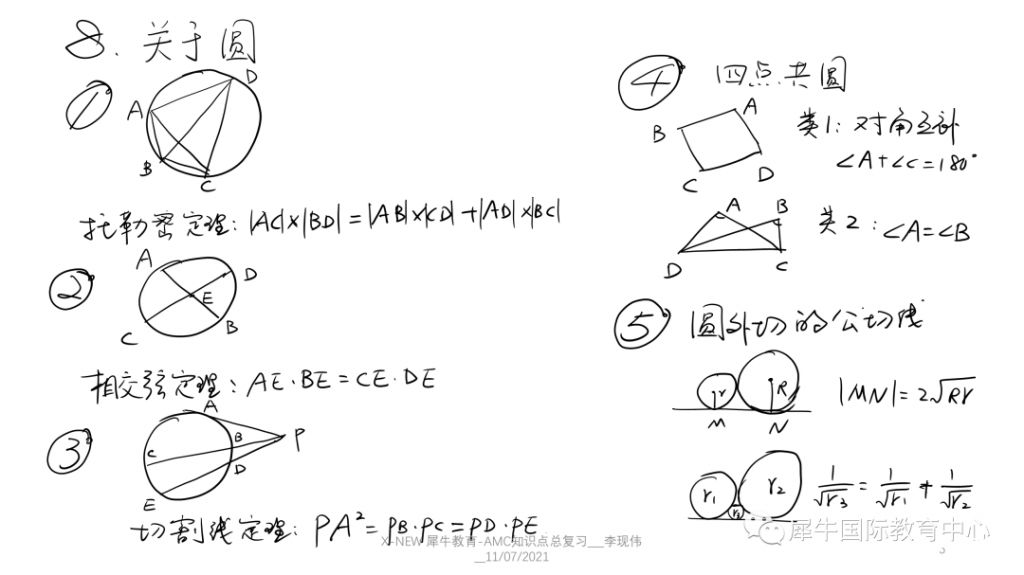 8. 关于圆
①
A
D
B
C
托勒密定理: |AC|×|BD| = |AB|×|CD| + |AD|×|BC|
②
A
D
E
C
B
相交弦定理: AE·BE = CE·DE
③
A
B
P
C
D
E
切割线定理: PA² = PB·PC = PD·PE
④ 四点共圆
A
B
C
D
类1: 对角互补
∠A+∠C=180°
A
B
D
C
类2: ∠A=∠B
⑤ 圆外切的公切线
r
R
M
N
|MN| = 2√Rr
r₁
r₃
r₂
1/√r₃ = 1/√r₁ + 1/√r₂
X-NEW 犀牛教育-AMC知识点总复习__李现伟
__11/07/2021
犀牛国际教育中心